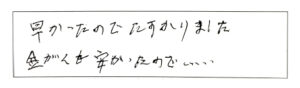 早かったのでたすかりました
金がくも安かったので……